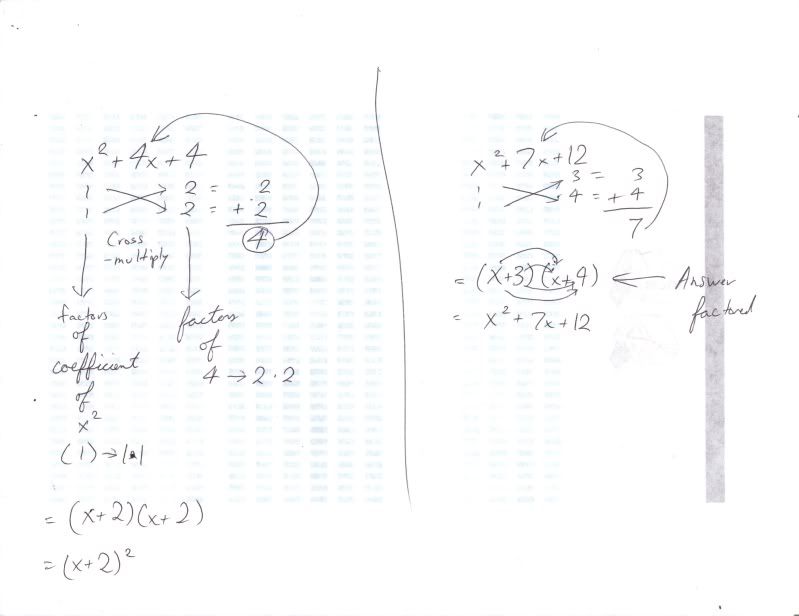 x² + 4x + 4
1 2 = 2
1 2 = + 2
4
Cross
-multiply
factors
of
coefficient
of
x²
(1) → 1·1
factors
of
4 → 2·2
= (x+2)(x+2)
= (x+2)²
x² + 7x + 12
1 3 = 3
1 4 = + 4
7
= (x+3)(x+4) ← Answer
factored
= x² + 7x + 12